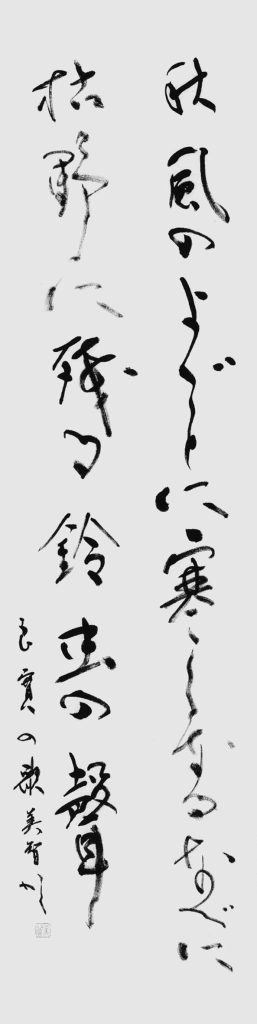 秋風のよごとに寒くなるなべに
枯野に残る鈴虫の聲
良寛の歌 美智かく